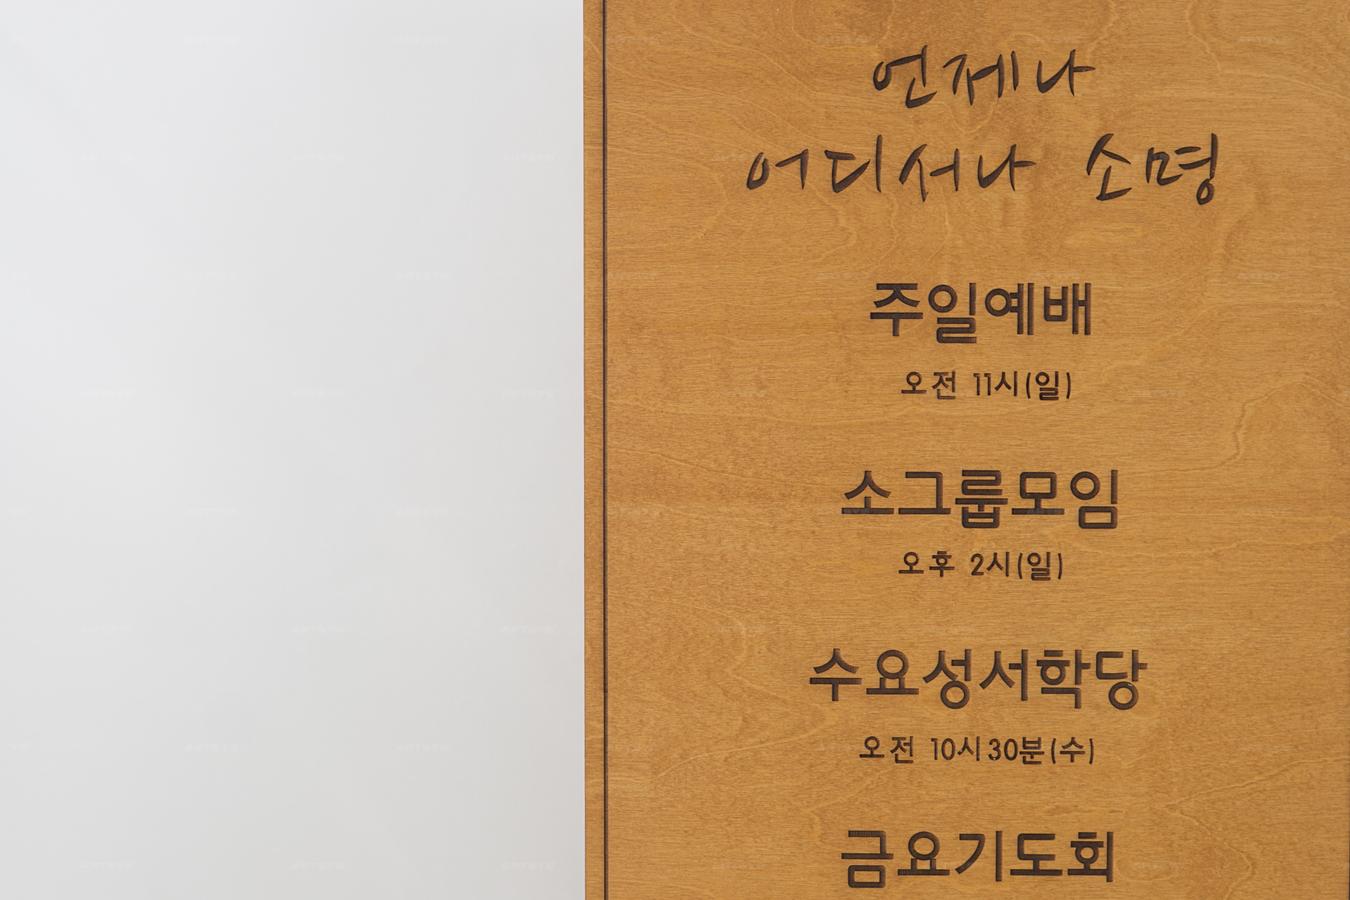 언제나
어디서나 소명
주일예배
오전 11시(일)
소그룹모임
오후 2시(일)
수요성서학당
오전 10시30분(수)
금요기도회